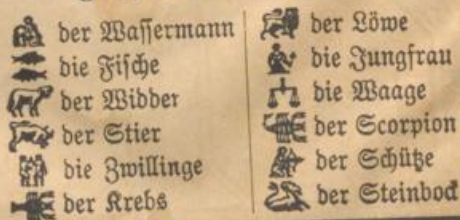 der Wassermann
die Fische
der Widder
der Stier
die Zwillinge
der Krebs
der Löwe
die Jungfrau
die Waage
der Scorpion
der Schütze
der Steinbock